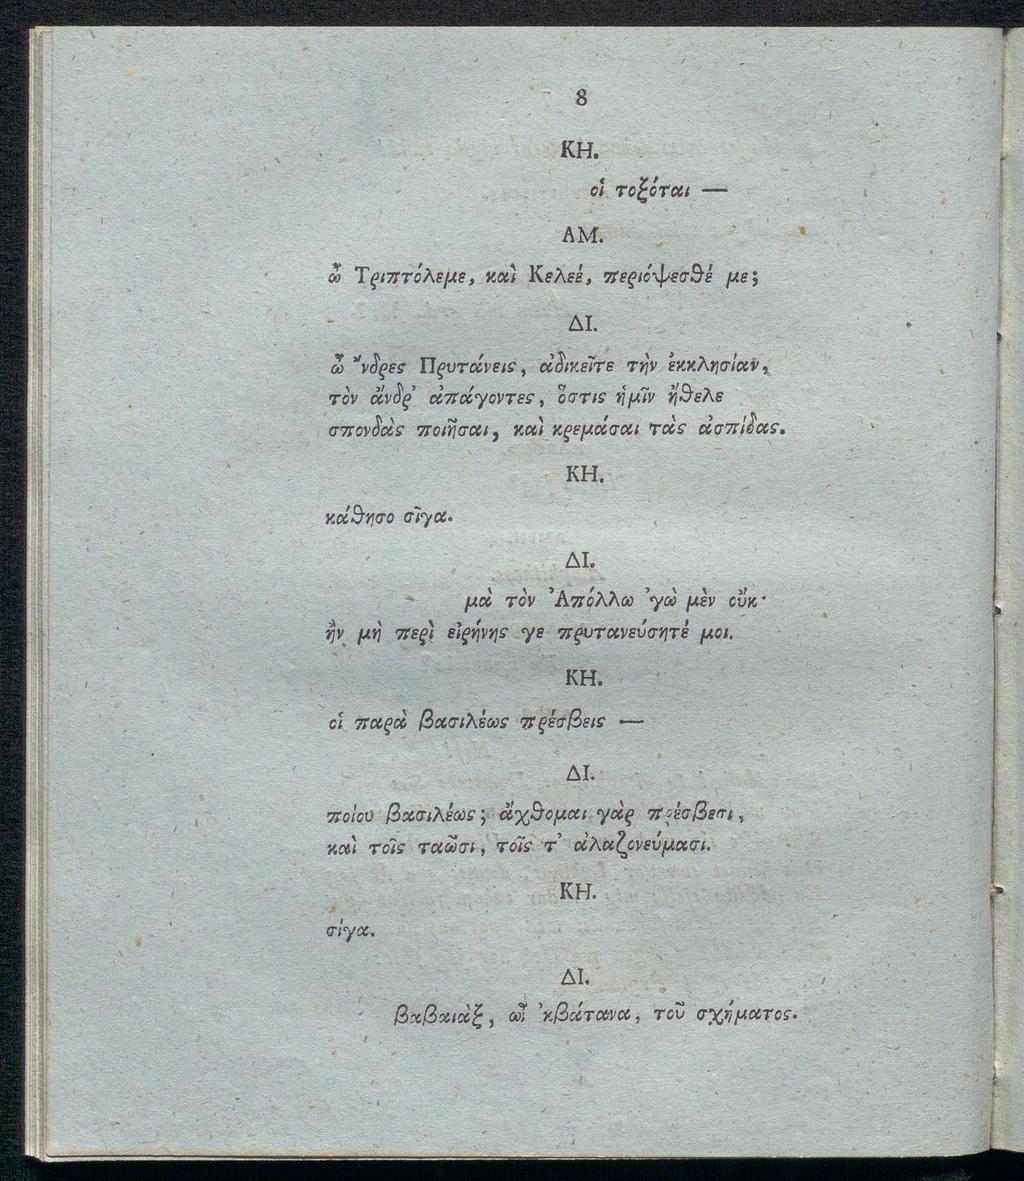 8
ΚΗ.
οἱ τοξόται —
ΑΜ.
ὦ Τριπτόλεμε, καὶ Κελεέ, περιόψεσθέ με;
ΔΙ.
ὦ ἄνδρες Πρυτάνεις, ἀδικεῖτε τὴν ἐκκλησίαν,
τὸν ἄνδρ᾽ ἀπάγοντες, ὅστις ἡμῖν ἤθελε
σπονδὰς ποιῆσαι, καὶ κρεμάσαι τὰς ἀσπίδας.
ΚΗ.
κάθησο σῖγα.
ΔΙ.
μὰ τὸν Ἀπόλλω ᾽γὼ μὲν οὔκ·
ἢν μὴ περὶ εἰρήνης γε πρυτανεύσητέ μοι.
ΚΗ.
οἱ παρὰ βασιλέως πρέσβεις —
ΔΙ.
ποίου βασιλέως; ἄχθομαι γὰρ πρέσβεσι,
καὶ τοῖς ταῶσι, τοῖς τ᾽ ἀλαζονεύμασι.
ΚΗ.
σίγα.
ΔΙ.
βαβαιὰξ, ὦ ᾽κβάτανα, τοῦ σχήματος.